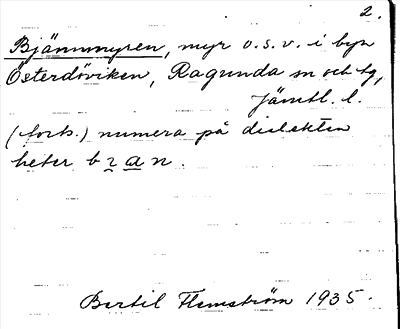 2.
Bjännmyren, myr o.s.v. i byn
Österdöviken, Ragunda sn och tg,
Jämtl. l.
(forts.) numera på dialekten
heter b
Bertil Flemström 1935.